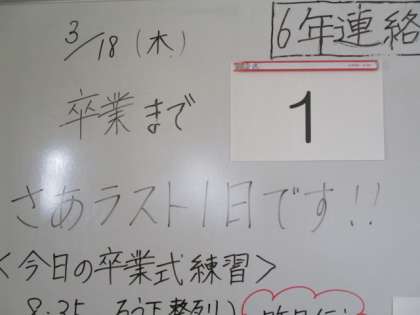 3/18（木）
6年連絡
卒業まで
1
さあラスト1日です!!
<今日の卒業式練習>
8:35 ろう下整列